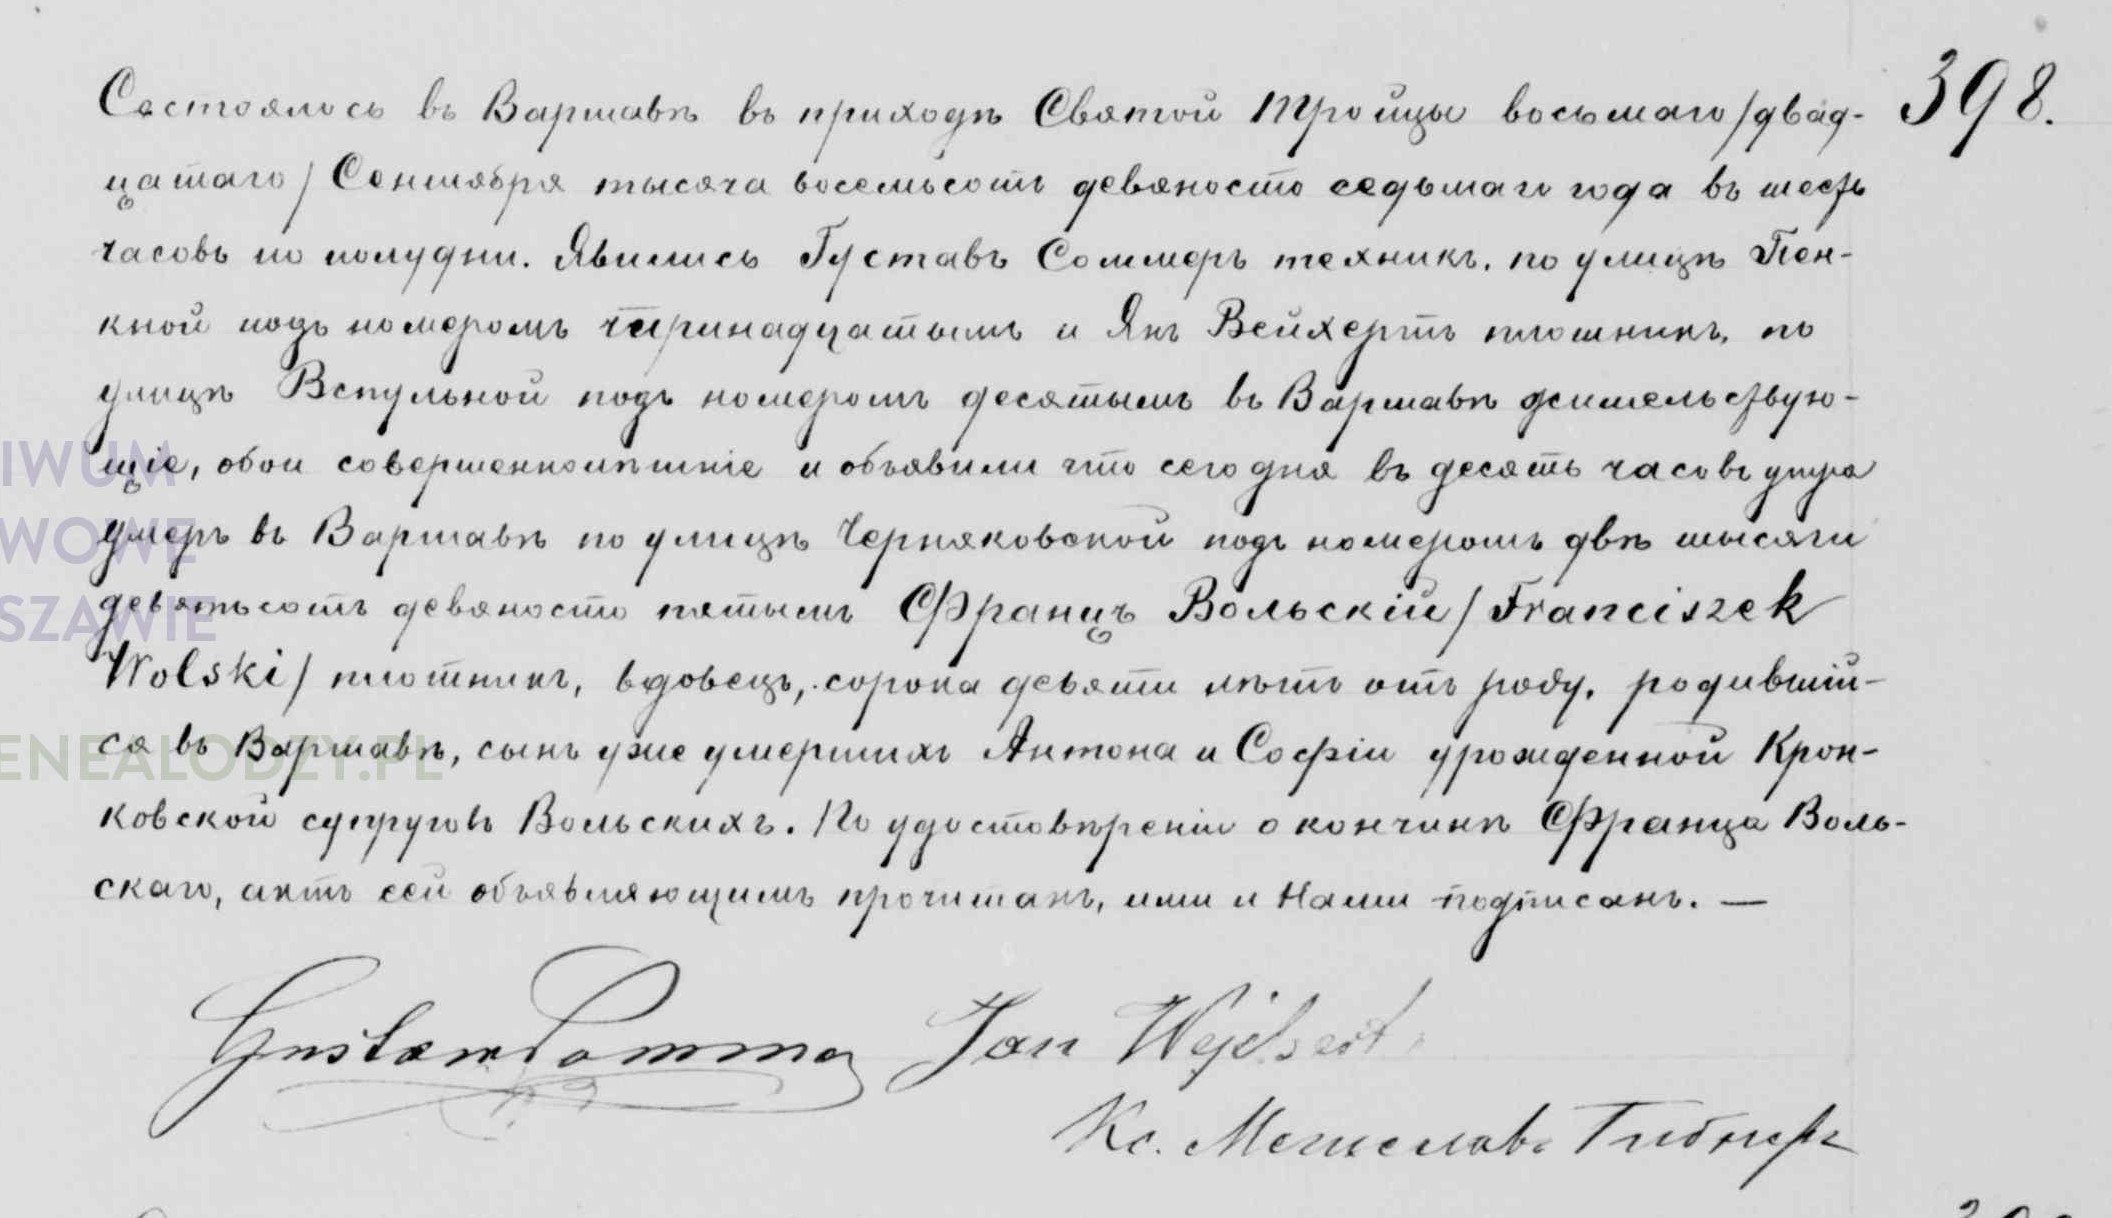 398.
Состоялось въ Варшавѣ въ приходѣ Святой Тройцы восьмаго /двад-
цатаго/ Сентября тысяча восемьсотъ девяносто седьмаго года въ шесть
часовъ по полудни. Явились Густавъ Соммеръ техникъ, по улицѣ Пен-
кной подъ номеромъ тринадцатымъ и Янъ Вейхертъ плотникъ, по
улицѣ Вспульной подъ номеромъ десятымъ въ Варшавѣ жительствую-
щіе, обои совершеннолѣтніе и объявили что сего дня въ десять часовъ утра
умеръ въ Варшавѣ по улицѣ Черняковской подъ номеромъ двѣ тысячи
девятьсотъ девяносто пятымъ Францъ Вольскій /Franciszek
Wolski/ плотникъ, вдовецъ, сорока девяти лѣтъ отъ роду, родившій-
ся въ Варшавѣ, сынъ уже умершихъ Антона и Софіи урожденной Крон-
ковской супруговъ Вольскихъ. По удостовѣреніи о кончинѣ Франца Воль-
скаго, актъ сей объявляющимъ прочитанъ, ими и Нами подписанъ. —
Gustaw Sommer Jan Wejchert
Кс. Мечиславъ
IWUM
WOWE
SZAWIE
ENEALODZY.PL